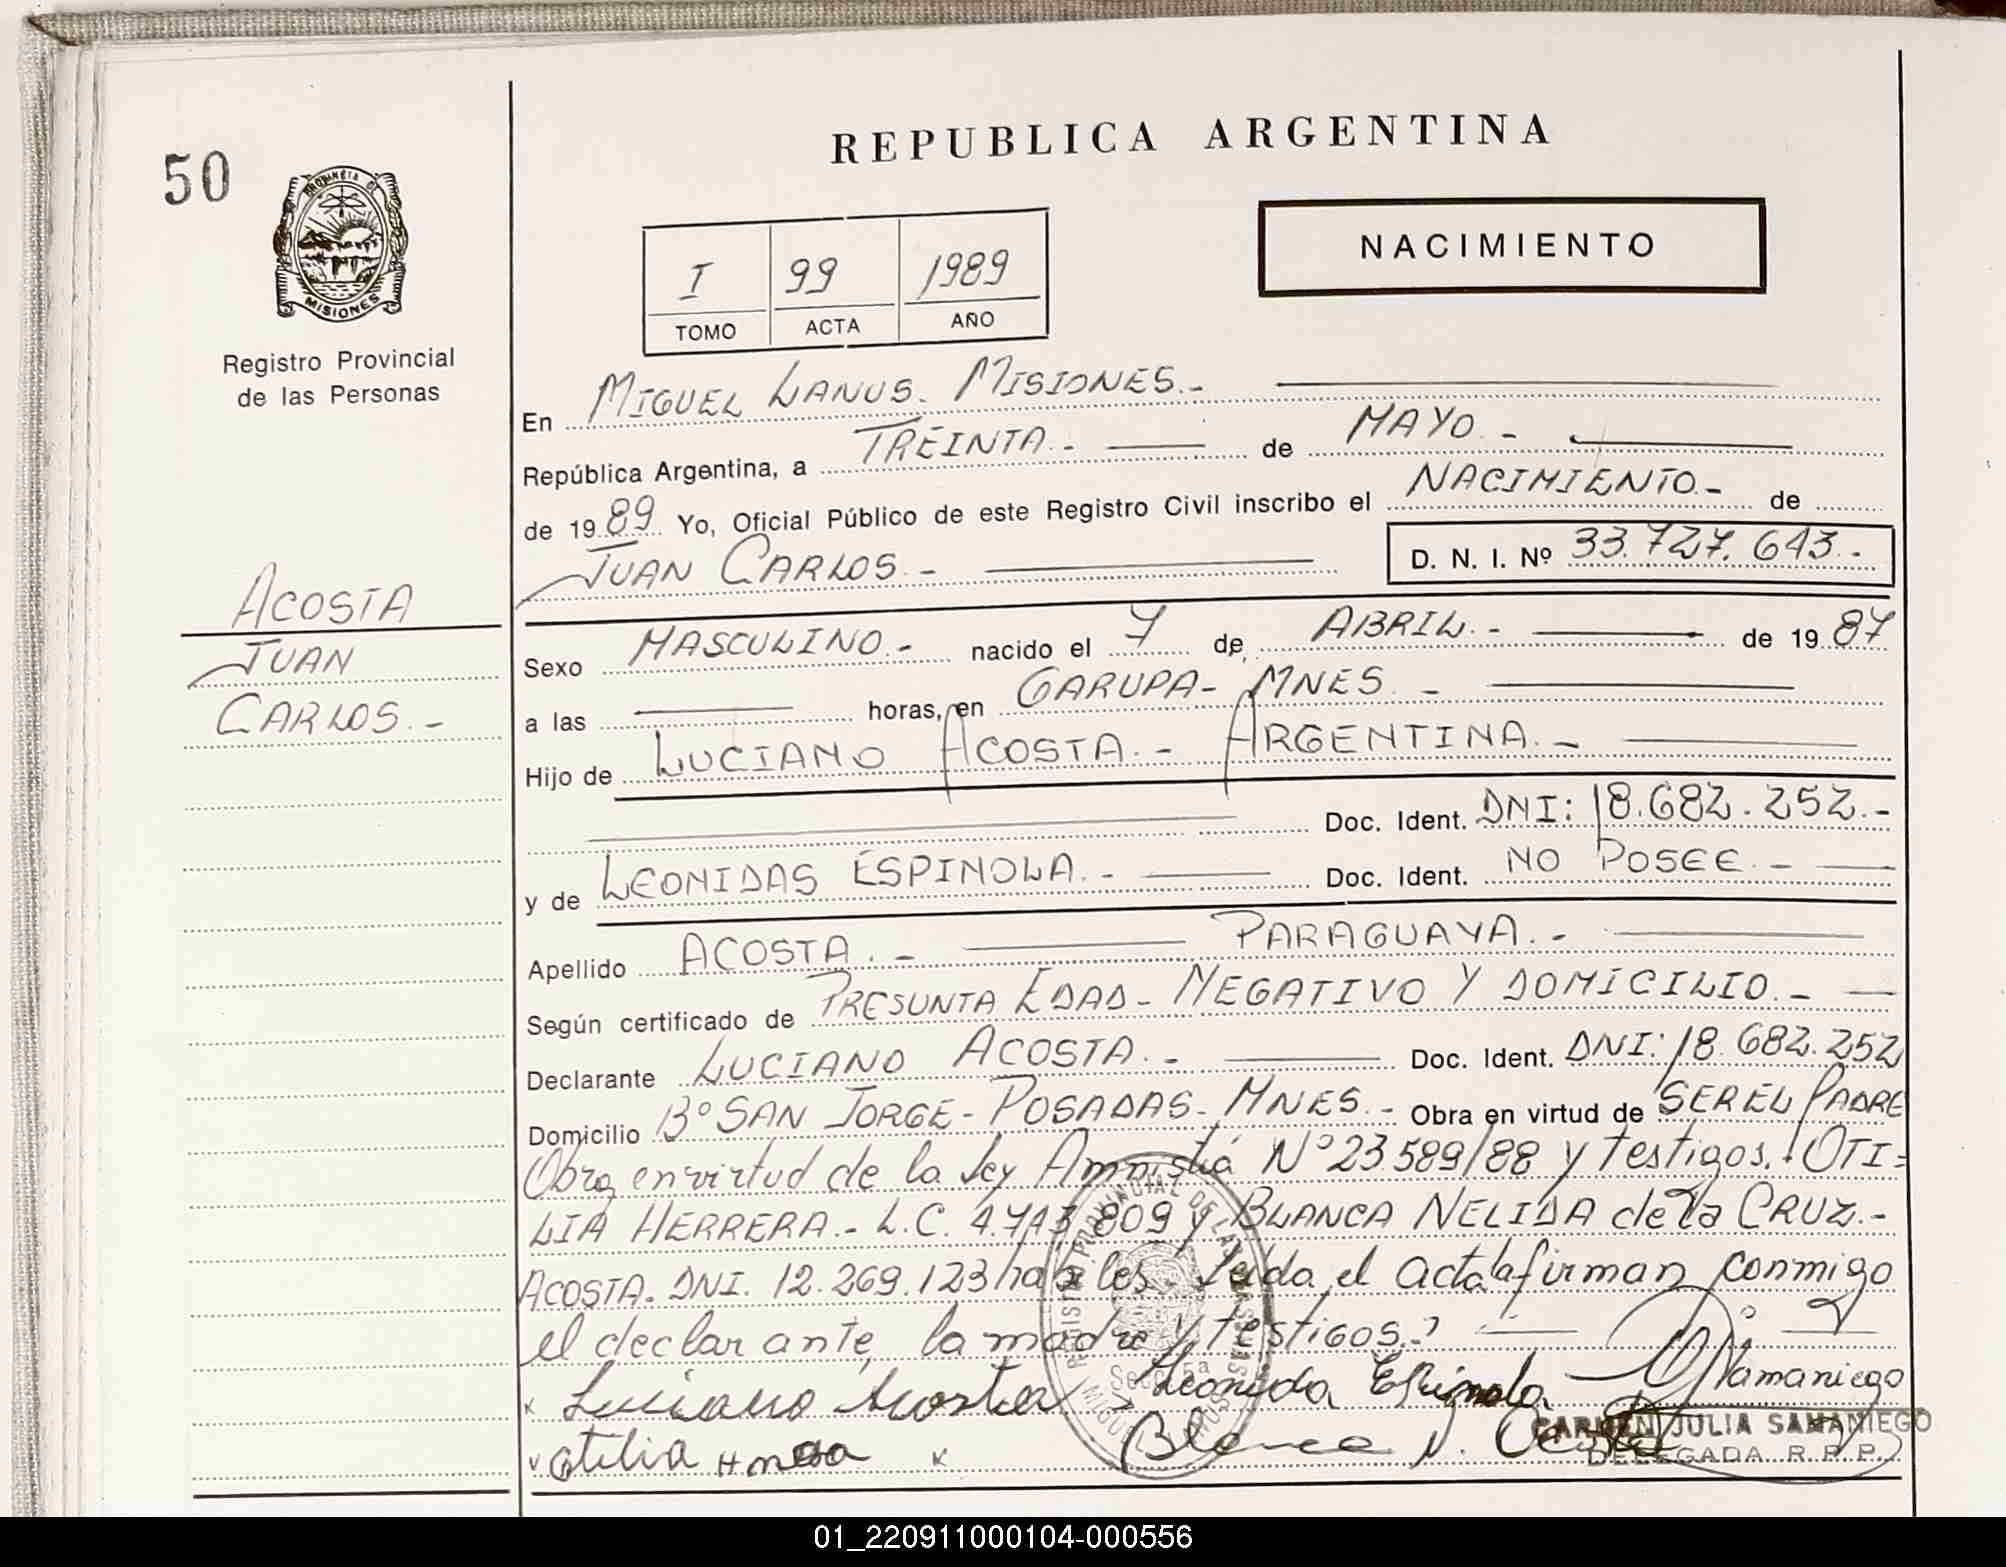 REPUBLICA ARGENTINA
50
PROVINCIA DE
MISIONES
Registro Provincial
de las Personas
NACIMIENTO
I 99 1989
TOMO ACTA AÑO
En MIGUEL LANUS. MISIONES.-
República Argentina, a TREINTA.- de MAYO.-
de 1989. Yo, Oficial Público de este Registro Civil inscribo el NACIMIENTO.- de
JUAN CARLOS.- D. N. I. Nº 33.727.643.-
ACOSTA
JUAN
CARLOS.-
Sexo MASCULINO.- nacido el 7 de ABRIL.- de 1987
a las horas, en GARUPA- MNES.-
Hijo de LUCIANO ACOSTA.- ARGENTINA.-
Doc. Ident. DNI: 18.682.252.-
y de LEONIDAS ESPINOLA.- Doc. Ident. NO POSEE.-
Apellido ACOSTA.- PARAGUAYA.-
Según certificado de PRESUNTA EDAD- NEGATIVO Y DOMICILIO.-
Declarante LUCIANO ACOSTA.- Doc. Ident. DNI: 18.682.252
Domicilio Bº SAN JORGE- POSADAS- MNES.- Obra en virtud de SER EL PADRE
Obra en virtud de la Ley Amnistiá Nº 23.589/88 y testigos. OTI=
LIA HERRERA.- L.C. 4.743.809 y BLANCA NELIDA de la CRUZ.-
ACOSTA. DNI. 12.269.123 habiles. Leida el acta la firman conmigo
el declarante, la madre y testigos.
Luciano Acosta Leonida Espinola Samaniego
Otilia Blanca N.
CARMEN JULIA SAMANIEGO
DELEGADA R.P.P.
REGISTRO PROVINCIAL DE LAS PERSONAS
01_220911000104-000556